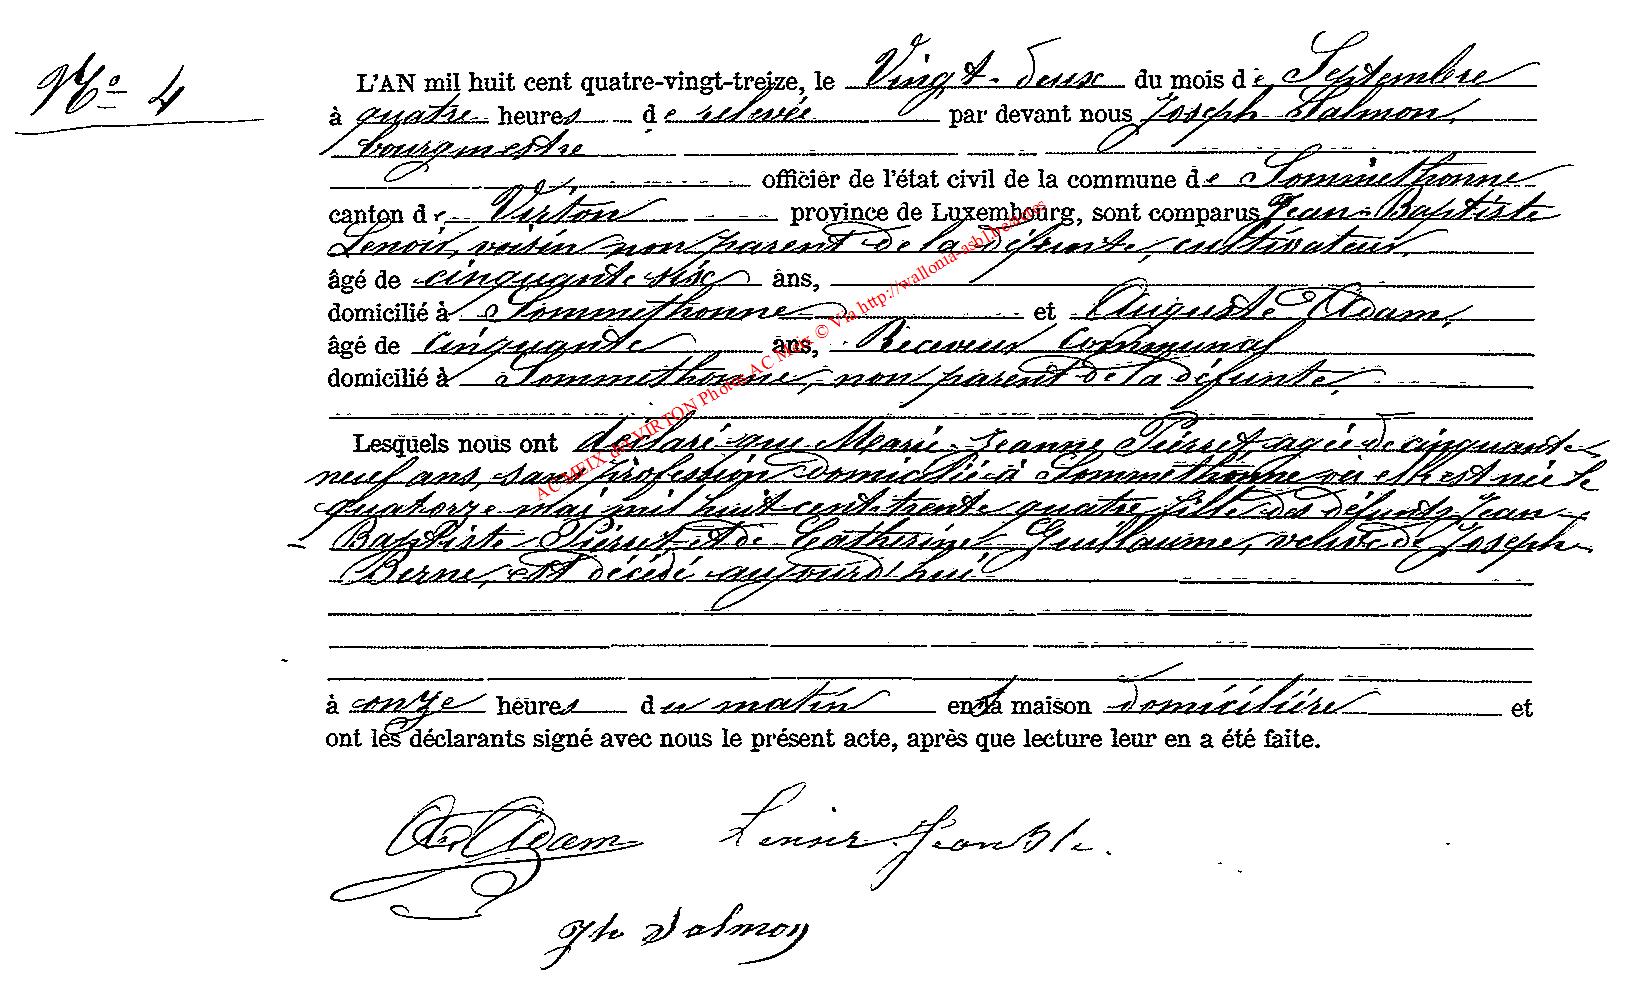 No 4
L'AN mil huit cent quatre-vingt-treize, le Vingt-deux du mois de Septembre
à quatre heures de relevée par devant nous Joseph Salmon,
bourgmestre
officier de l'état civil de la commune de Sommethonne
canton de Virton province de Luxembourg, sont comparus Jean-Baptiste
Lenoir, voisin non parent de la défunte, cultivateur,
âgé de cinquante six ans,
domicilié à Sommethonne et Auguste Adam,
âgé de cinquante ans, Receveur Communal
domicilié à Sommethonne, non parent de la défunte,
Lesquels nous ont déclaré que Marie-Jeanne Pierret, agée de cinquante
neuf ans, sans profession domiciliée à Sommethonne où elle est née le
quatorze mai mil huit cent trente quatre fille des défunts Jean
Baptiste Pierret et de Catherine Guillaume, veuve de Joseph
Berne, est décédé aujourd'hui
à onze heures du matin en sa maison domicilière et
ont les déclarants signé avec nous le présent acte, après que lecture leur en a été faite.
Adam Lenoir Jean Bte.
Jh Salmon
AC MEIX dvt VIRTON Photos AC Meix © Via http://wallonia-asbl.be